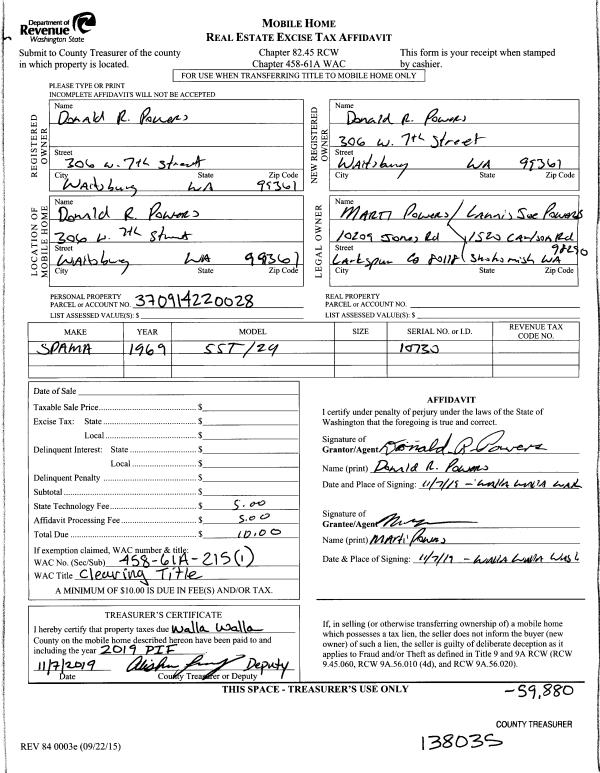 Department of
Revenue
Washington State
MOBILE HOME
REAL ESTATE EXCISE TAX AFFIDAVIT
Submit to County Treasurer of the county
in which property is located.
Chapter 82.45 RCW
Chapter 458-61A WAC
This form is your receipt when stamped
by cashier.
FOR USE WHEN TRANSFERRING TITLE TO MOBILE HOME ONLY
PLEASE TYPE OR PRINT
INCOMPLETE AFFIDAVITS WILL NOT BE ACCEPTED
REGISTERED OWNER
Name
Donald R. Powers
Street
306 W. 7th Street
City State Zip Code
Waitsburg WA 99361
NEW REGISTERED OWNER
Name
Donald R. Powers
306 W. 7th Street
Street
Waitsburg WA 99361
City State Zip Code
LOCATION OF MOBILE HOME
Name
Donald R. Powers
306 W. 7th Street
Street
Waitsburg WA 99361
City State Zip Code
LEGAL OWNER
Name
Marti Powers / Lannis Sue Powers
10209 Jones Rd / 1520 Carlson Rd
Street
98290
Larkspur Co 80118 Snohomish WA
City State Zip Code
PERSONAL PROPERTY
PARCEL or ACCOUNT NO. 370914220028
LIST ASSESSED VALUE(S): $
REAL PROPERTY
PARCEL or ACCOUNT NO.
LIST ASSESSED VALUE(S): $
MAKE YEAR MODEL SIZE SERIAL NO. or I.D. REVENUE TAX CODE NO.
SPAMA 1969 SST/29 10730
Date of Sale
Taxable Sale Price $
Excise Tax: State $
Local $
Delinquent Interest: State $
Local $
Delinquent Penalty $
Subtotal $
State Technology Fee $ 5.00
Affidavit Processing Fee $ 5.00
Total Due $ 10.00
If exemption claimed, WAC number & title:
WAC No. (Sec/Sub) 458-61A-215(1)
WAC Title Clearing Title
A MINIMUM OF $10.00 IS DUE IN FEE(S) AND/OR TAX.
AFFIDAVIT
I certify under penalty of perjury under the laws of the State of
Washington that the foregoing is true and correct.
Signature of
Grantor/Agent Donald R Powers
Name (print) Donald R. Powers
Date and Place of Signing: 11/7/19 - Walla Walla WA
Signature of
Grantee/Agent
Name (print) Marti Powers
Date & Place of Signing: 11/7/19 - Walla Walla Wash
TREASURER'S CERTIFICATE
I hereby certify that property taxes due Walla Walla
County on the mobile home described hereon have been paid to and
including the year 2019 PIF
11/7/2019 Deputy
Date County Treasurer or Deputy
If, in selling (or otherwise transferring ownership of) a mobile home
which possesses a tax lien, the seller does not inform the buyer (new
owner) of such a lien, the seller is guilty of deliberate deception as it
applies to Fraud and/or Theft as defined in Title 9 and 9A RCW (RCW
9.45.060, RCW 9A.56.010 (4d), and RCW 9A.56.020).
THIS SPACE - TREASURER'S USE ONLY
-59,880
COUNTY TREASURER
138035
REV 84 0003e (09/22/15)